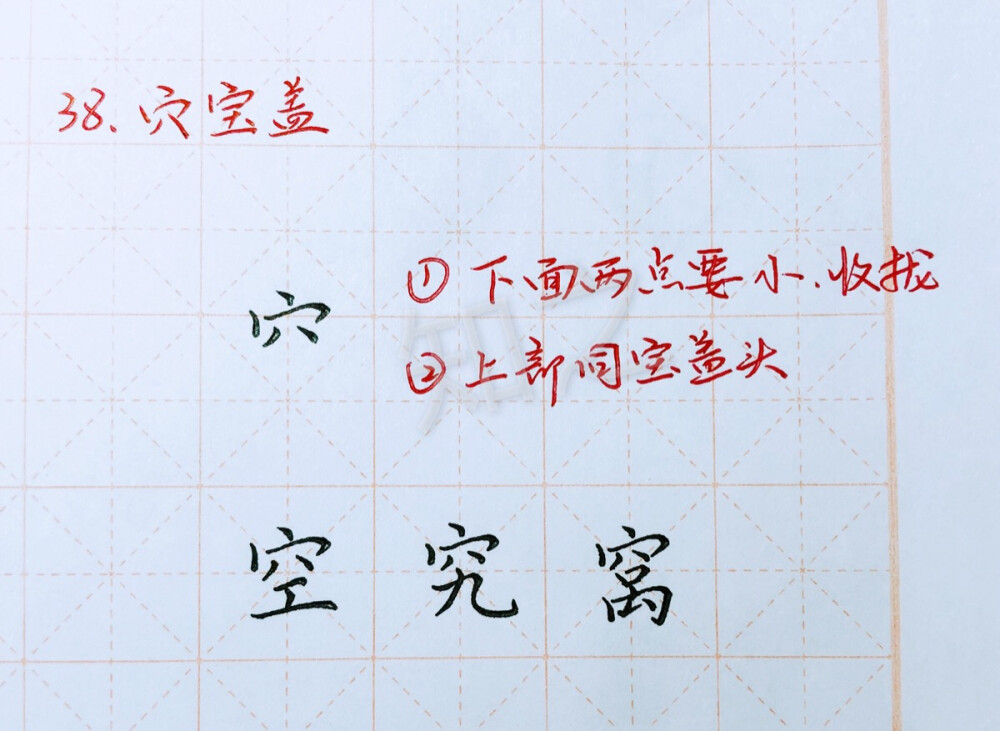 38、穴宝盖
穴
①下面两点要小、收拢
②上部同宝盖头
空 究 窝